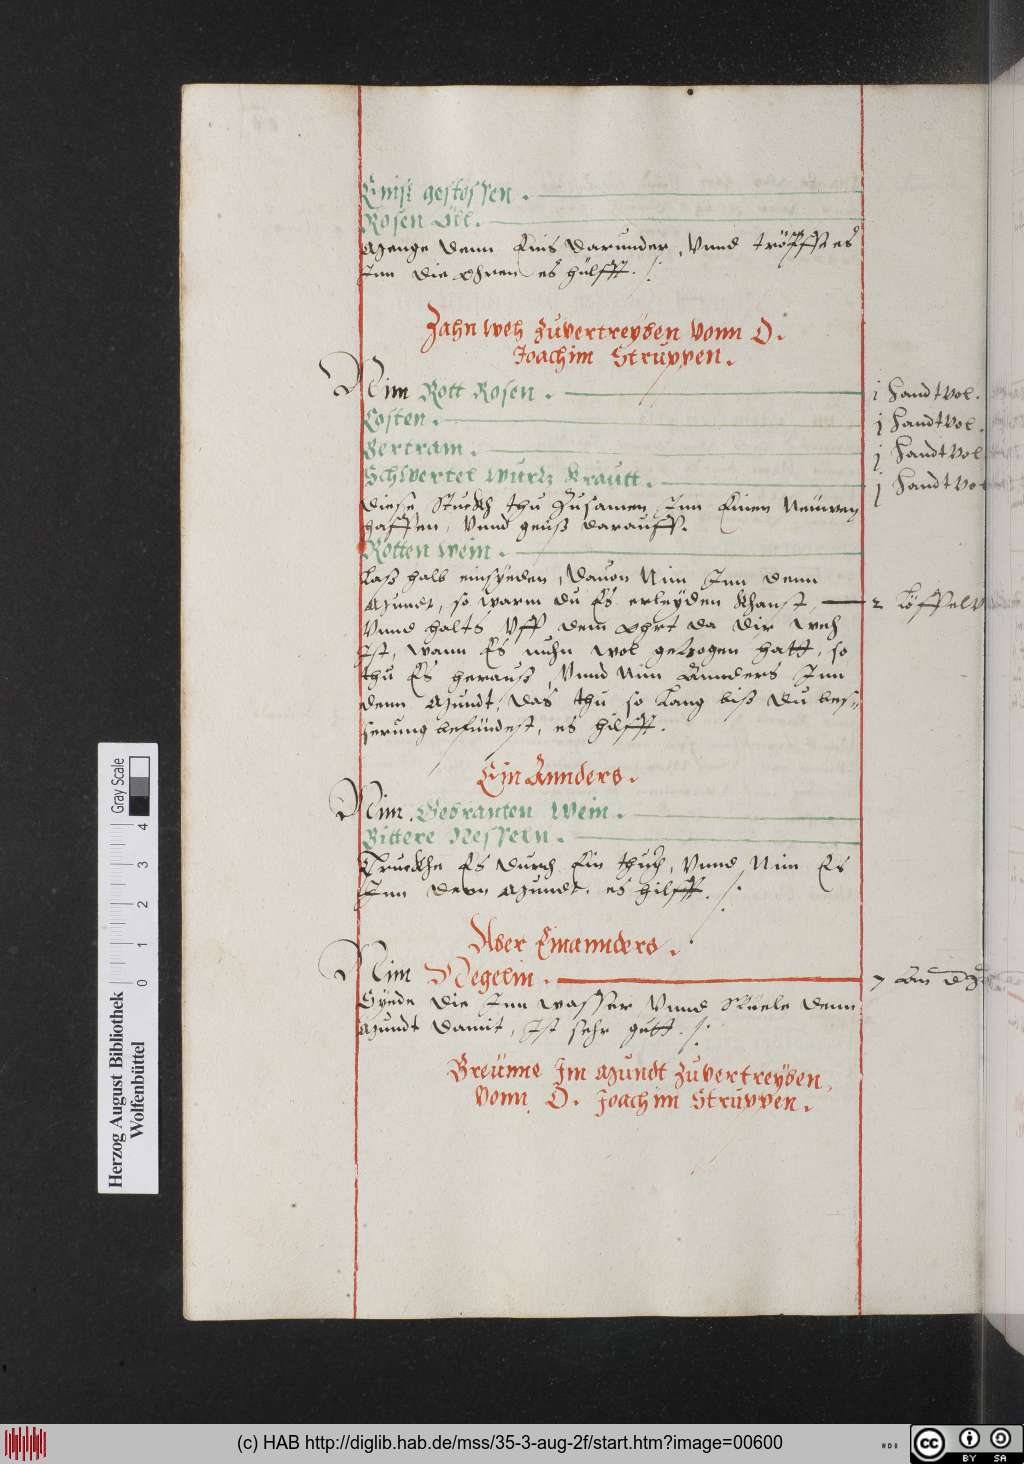 Eniß gestossen.
Rosen Öll.
Menge denn Enis darunder, Vnnd tröpffst es
Inn die ohren es hülfft.
Zahn weh zuvertreyben vonn D.
Joachim Struppen.
Nim Rott Rosen. j Handtvol.
Costen. j Handtvol.
Bertram. j Handtvol
Schwertel wurtz Krautt. j Handtvol
diese Stuckh thu Zusamen Inn Einen Neuwen
haffen, Vnnd geuß darauff.
Rotten wein.
Laß halb einsyeden, dauon Nim Inn denn
Mundt, so warm du Es erleyden khanst, 2 Löffel
Vnnd halts Vff dem Ohrt da dir weh
Ist, wann Es nuhn wol gezogen hatt, so
thu Es herauß, Vnnd Nim Annders Inn
denn Mundt, das thu so lang biß du bes-
serung befündest, es hilfft.
Ein Annders.
Nim Gebranten Wein.
Bittere Nesseln.
Truckhe Es durch Ein thuch, Vnnd Nim Es
Inn denn Mundt, es hilfft.
Aber Einannders.
Nim Negelin. 7
Syede die Inn wasser Vnnd Küele denn
Mundt damit, Ist sehr gutt.
Breünne Im Mundt zuvertreyben,
vonn D. Joachim Struppen.
Herzog August Bibliothek
Wolfenbüttel
0 1 2 3 4
Gray Scale
(c) HAB http://diglib.hab.de/mss/35-3-aug-2f/start.htm?image=00600
cc BY SA